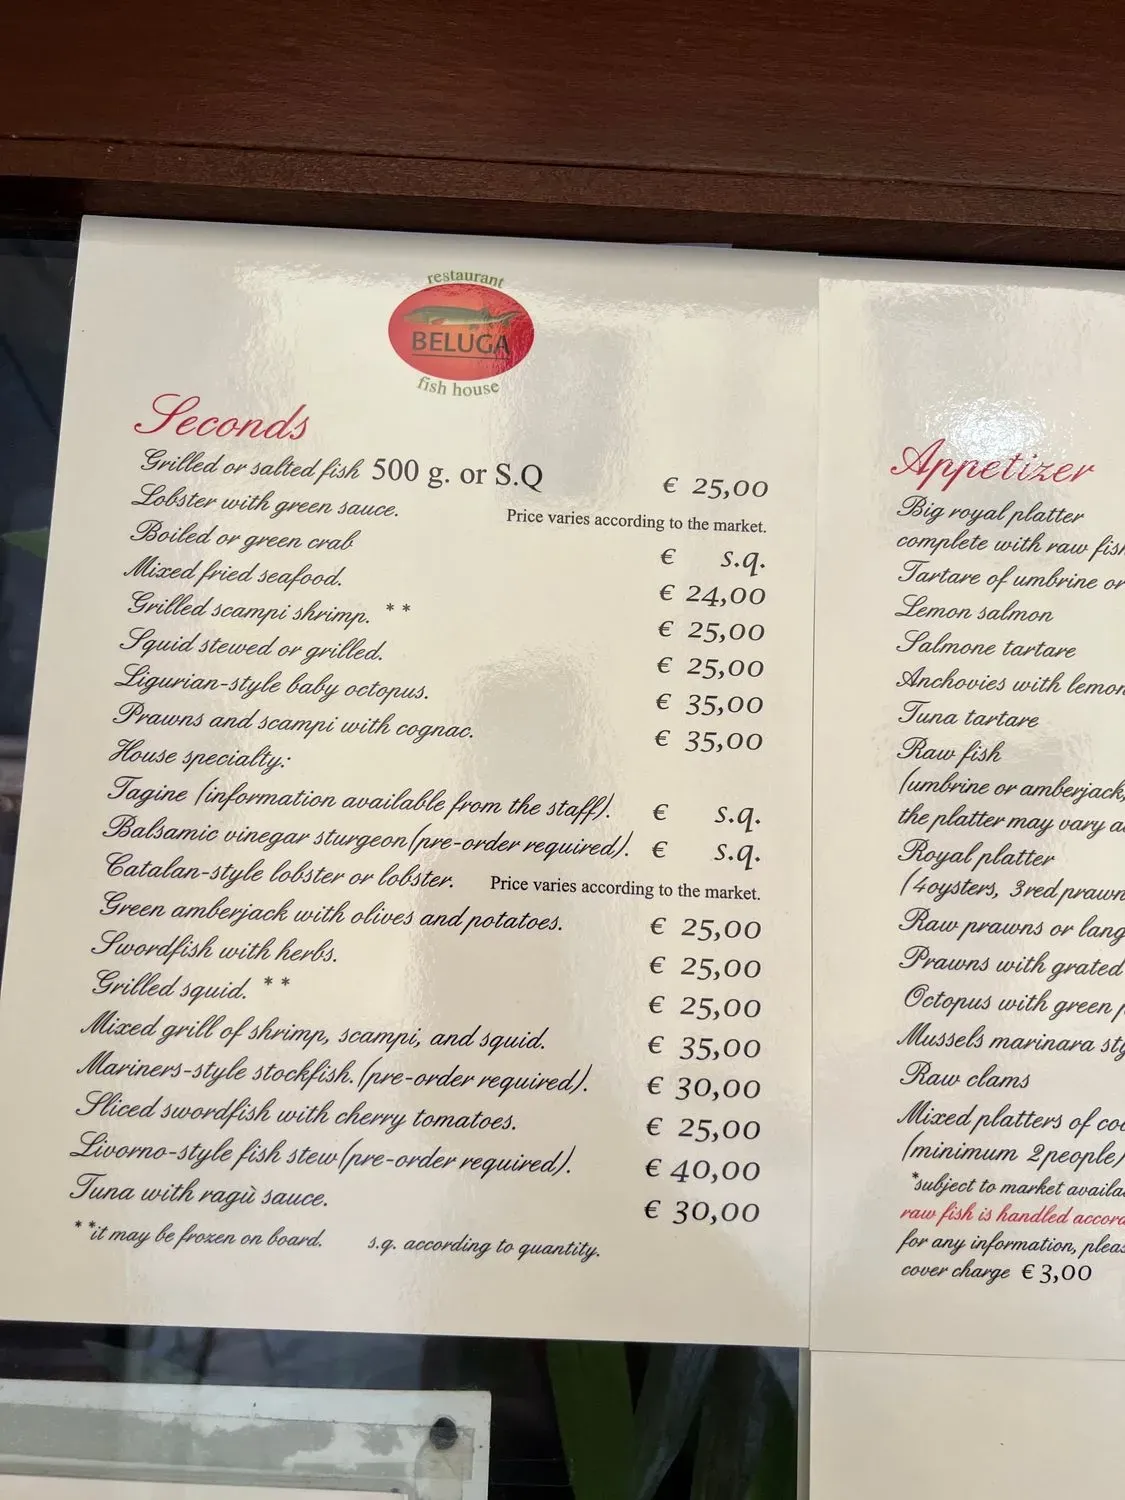 restaurant
BELUGA
fish house
Seconds
Grilled or salted fish 500 g. or S.Q € 25,00
Lobster with green sauce. Price varies according to the market.
Boiled or green crab € s.q.
Mixed fried seafood. € 24,00
Grilled scampi shrimp. ** € 25,00
Squid stewed or grilled. € 25,00
Ligurian-style baby octopus. € 35,00
Prawns and scampi with cognac. € 35,00
House specialty:
Tagine (information available from the staff). € s.q.
Balsamic vinegar sturgeon (pre-order required). € s.q.
Catalan-style lobster or lobster. Price varies according to the market.
Green amberjack with olives and potatoes. € 25,00
Swordfish with herbs. € 25,00
Grilled squid. ** € 25,00
Mixed grill of shrimp, scampi, and squid. € 35,00
Mariners-style stockfish. (pre-order required). € 30,00
Sliced swordfish with cherry tomatoes. € 25,00
Livorno-style fish stew (pre-order required). € 40,00
Tuna with ragù sauce. € 30,00
**it may be frozen on board. s.q. according to quantity.
Appetizer
Big royal platter
complete with raw
Tartare of umbrine or
Lemon salmon
Salmone tartare
Anchovies with lemon
Tuna tartare
Raw fish
(umbrine or amberjack,
the platter may vary
Royal platter
(4oysters, 3red
Raw prawns or
Prawns with grated
Octopus with green
Mussels marinara
Raw clams
Mixed platters of
(minimum 2people)
*subject to market
raw fish is handled
for any information,
cover charge € 3,00